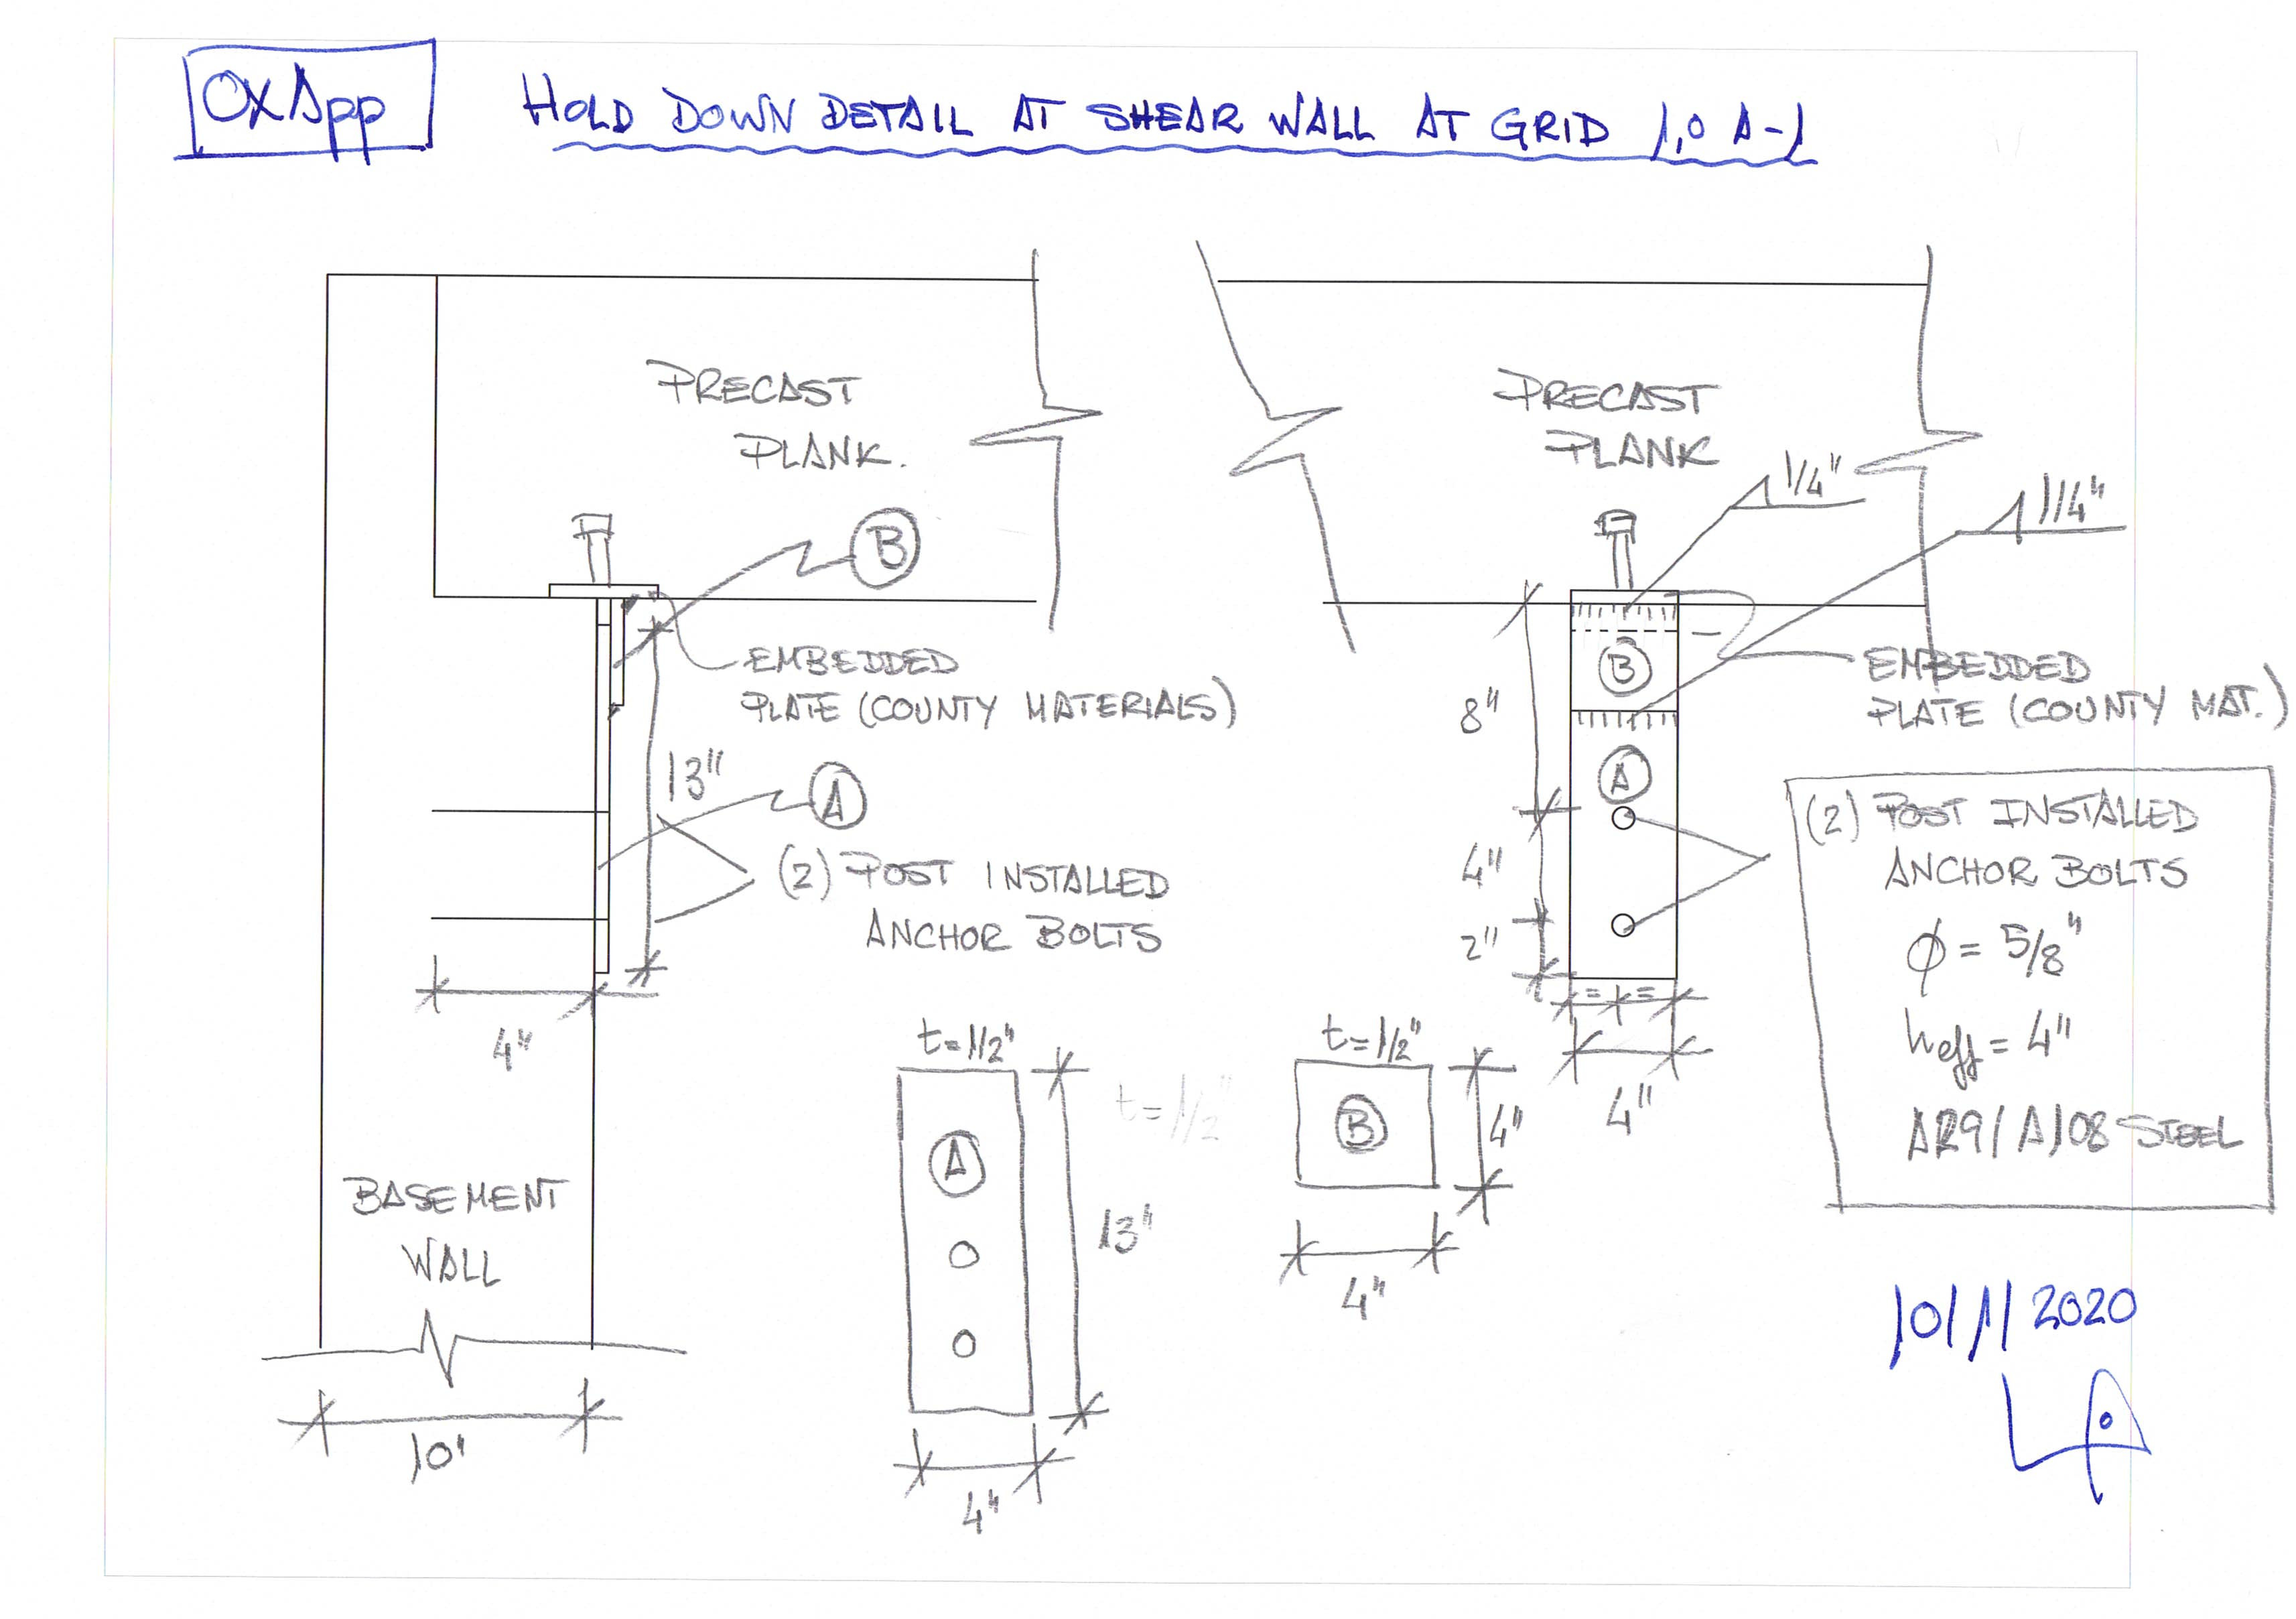 OXApp
HOLD DOWN DETAIL AT SHEAR WALL AT GRID 1,0 A-1
PRECAST
PLANK.
B
EMBEDDED
PLATE (COUNTY MATERIALS)
13"
A
(2) POST INSTALLED
ANCHOR BOLTS
4"
BASEMENT
WALL
10"
PRECAST
PLANK
1/4"
1/4"
B
EMBEDDED
PLATE (COUNTY MAT.)
8"
A
4"
2"
= =
4"
(2) POST INSTALLED
ANCHOR BOLTS
ϕ = 5/8"
heff = 4"
A29/A108 STEEL
t=1/2"
A
13"
4"
t=1/2"
t=1/2"
B
4"
4"
10/1/2020